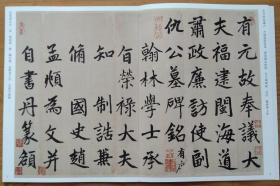 有元故奉議大
夫福建閩海道
肅政廉訪使副
仇公墓碑銘有序
翰林學士承
旨榮祿大夫
知制誥兼
脩國史趙
孟頫為文并
自書丹篆額